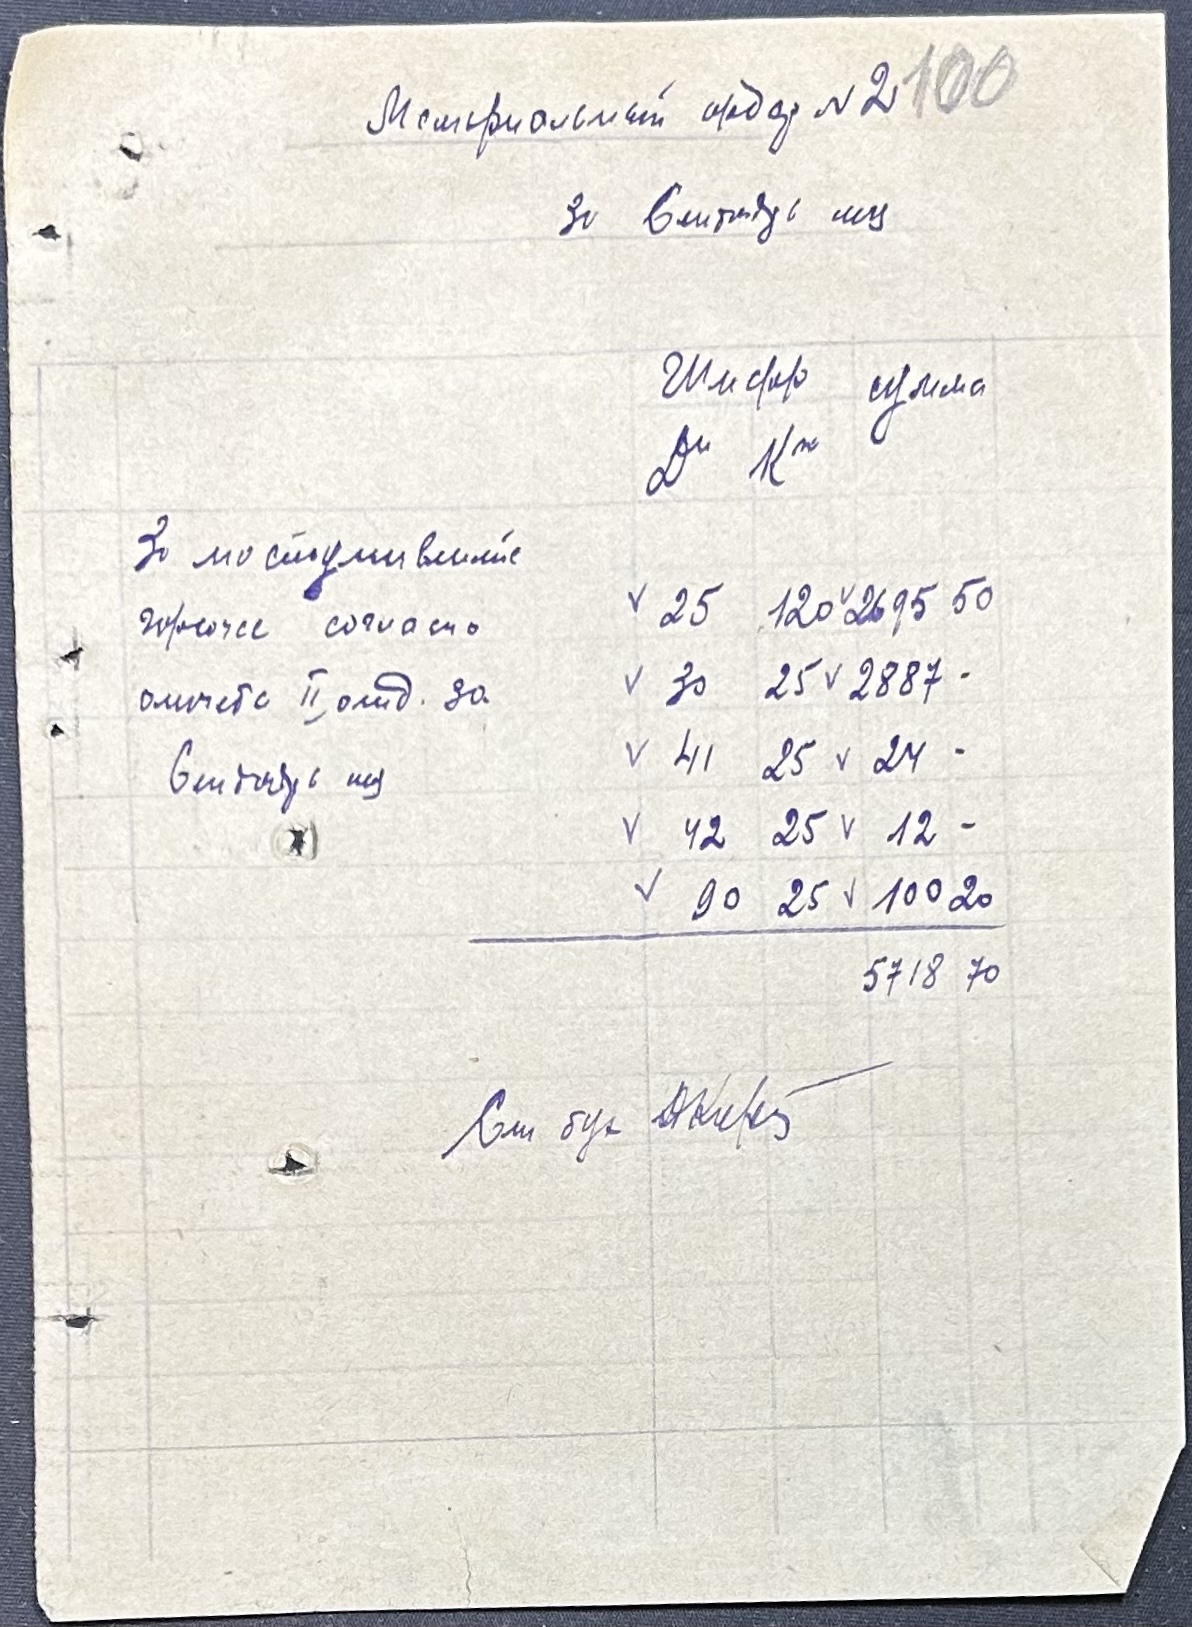 Мемориальный ордер N 2 100
За Сентябрь мц
Шифр сумма
Дт Кт
За поступившие
горючее согласно
отчета II отд. за
Сентябрь мц
✓ 25 120 ✓ 2695 50
✓ 30 25 ✓ 2887 -
✓ 41 25 ✓ 24 -
✓ 42 25 ✓ 12 -
✓ 90 25 ✓ 100 20
5718 70
бух